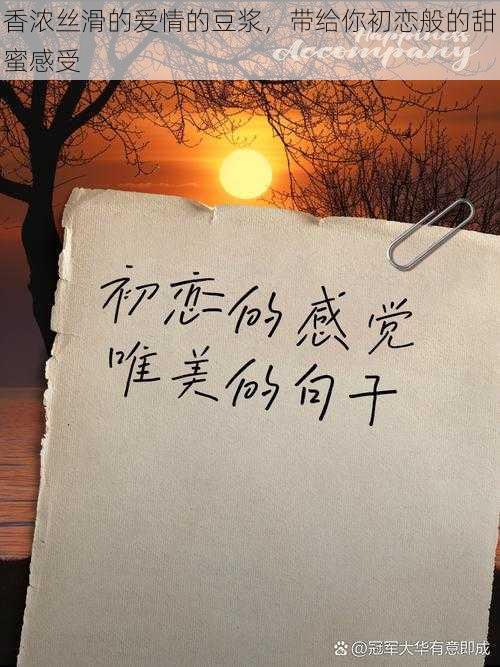 香浓丝滑的爱情的豆浆，带给你初恋般的甜
蜜感受
Happiness
Accompany
初恋的感觉
唯美的句子
@冠军大华有意即成